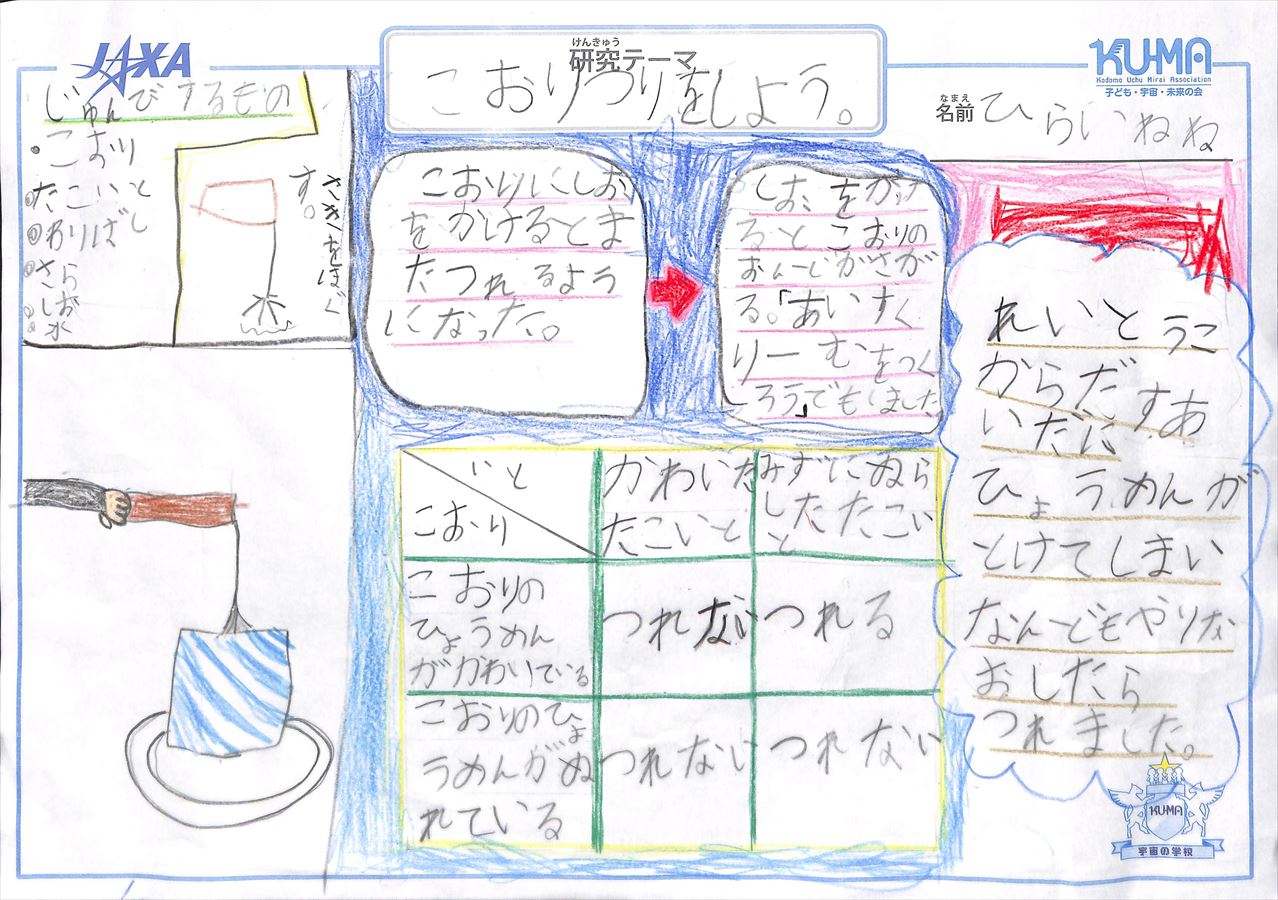 JAXA
けんきゅう
研究テーマ
こおりつりをしよう。
KU-MA
Kodomo Uchu Mirai Association
子ども・宇宙・未来の会
なまえ
名前
ひらいねね
じゅんびするもの
・こおり
たこいと
わりばし
さら
しお
水
さきをほぐ
す。
こおりにしお
をかけるとま
たつれるよう
になった。
しおをかけ
ると こおりの
おんーどがさが
る。「あいすく
りーむをつく
ろう」でもしました
れいとうこ
からだすあ
いだに
ひょうめんが
とけてしまい
なんーどもやりな
おしたら
つれました。
いと
こおり
かわいた
たこいと
みずにぬら
したたこい
と
こおりの
ひょうめん
がかわいている
つれない
つれる
こおりのひょ
うめんがぬ
れている
つれない
つれない
KU-MA
宇宙の学校